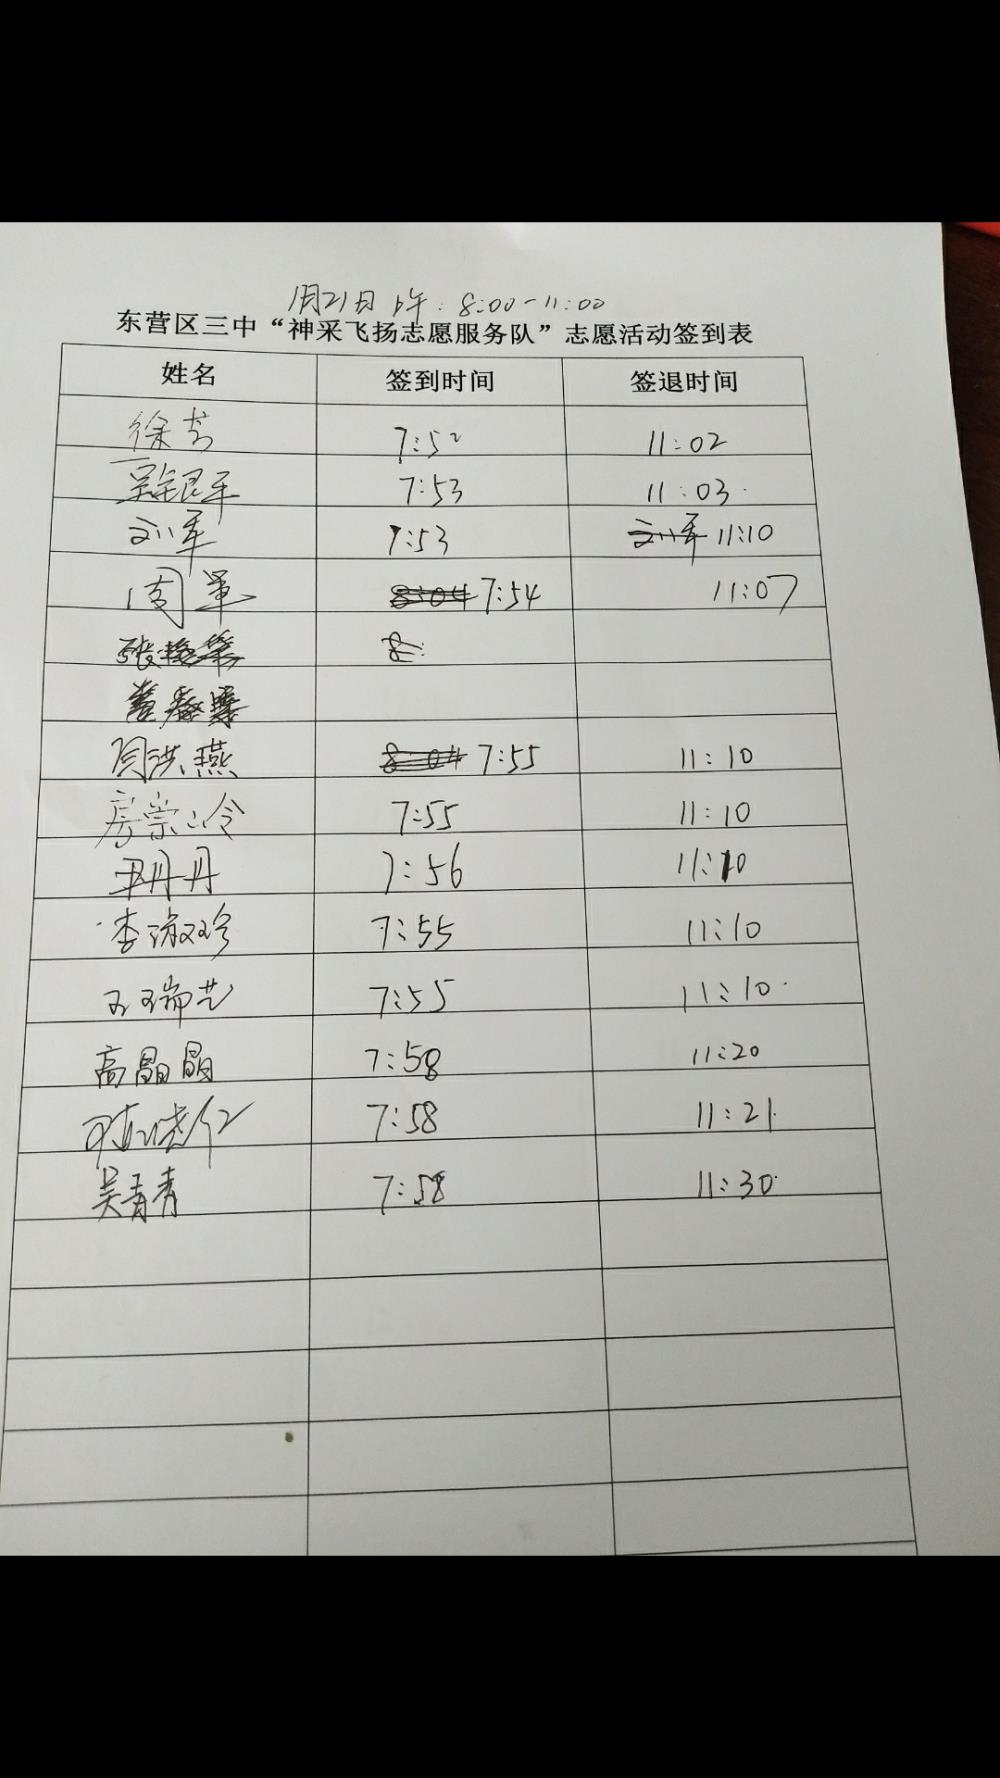 1月21日 上午：8:00-11:00
东营区三中“神采飞扬志愿服务队”志愿活动签到表
姓名 签到时间 签退时间
徐芳 7:52 11:02
7:53 11:03
刘军 7:53 刘军 11:10
周军 8:04 7:54 11:07
张艳 8:
黄春
周洪燕 8:04 7:55 11:10
房崇冷 7:55 11:10
尹丹丹 7:56 11:10
李淑珍 7:55 11:10
王瑞芝 7:55 11:10
高晶晶 7:58 11:20
7:58 11:21
吴青青 7:58 11:30